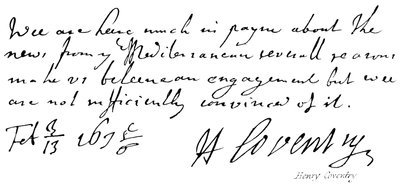 Wee are heere much in payne about the
news from ye Mediterranean severall reasons
make us beleeve an engagement but wee
are not sufficiently convinced of it.
Feb 3/13 1675/6
H Coventry
Henry Coventry